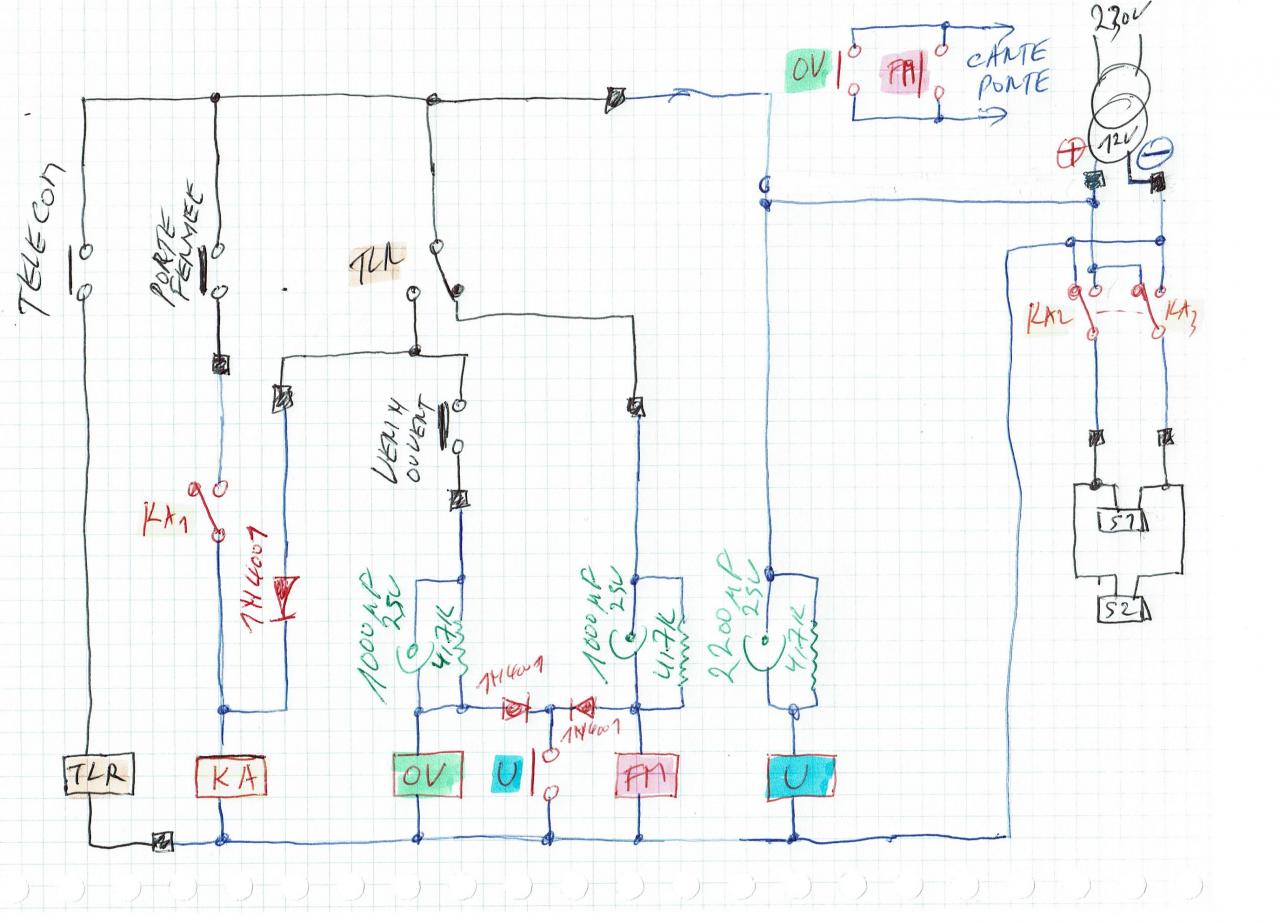 230V
OV
FM
CARTE
PORTE
+
12V
-
TELECOM
PORTE
FERMEE
TLR
KA2
KA3
VERIN
OUVERT
KA1
1N4001
1000 µF
25V
4,7K
1000 µF
25V
4,7K
2200 µF
25V
4,7K
S1
S2
1N4001
1N4001
TLR
KA
OV
U
FM
U